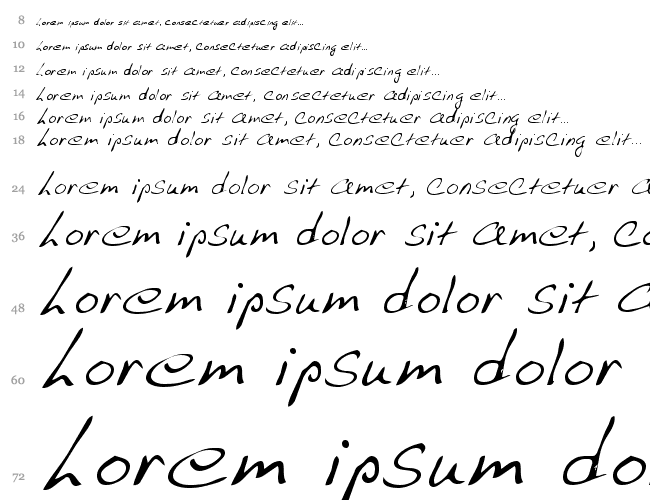 8 Lorem ipsum dolor sit amet, consectetuer adipiscing elit...
10 Lorem ipsum dolor sit amet, consectetuer adipiscing elit...
12 Lorem ipsum dolor sit amet, consectetuer adipiscing elit...
14 Lorem ipsum dolor sit amet, consectetuer adipiscing elit...
16 Lorem ipsum dolor sit amet, consectetuer adipiscing elit...
18 Lorem ipsum dolor sit amet, consectetuer adipiscing elit...
24 Lorem ipsum dolor sit amet, consectetuer a
36 Lorem ipsum dolor sit amet, co
48 Lorem ipsum dolor sit a
60 Lorem ipsum dolor
72 Lorem ipsum do